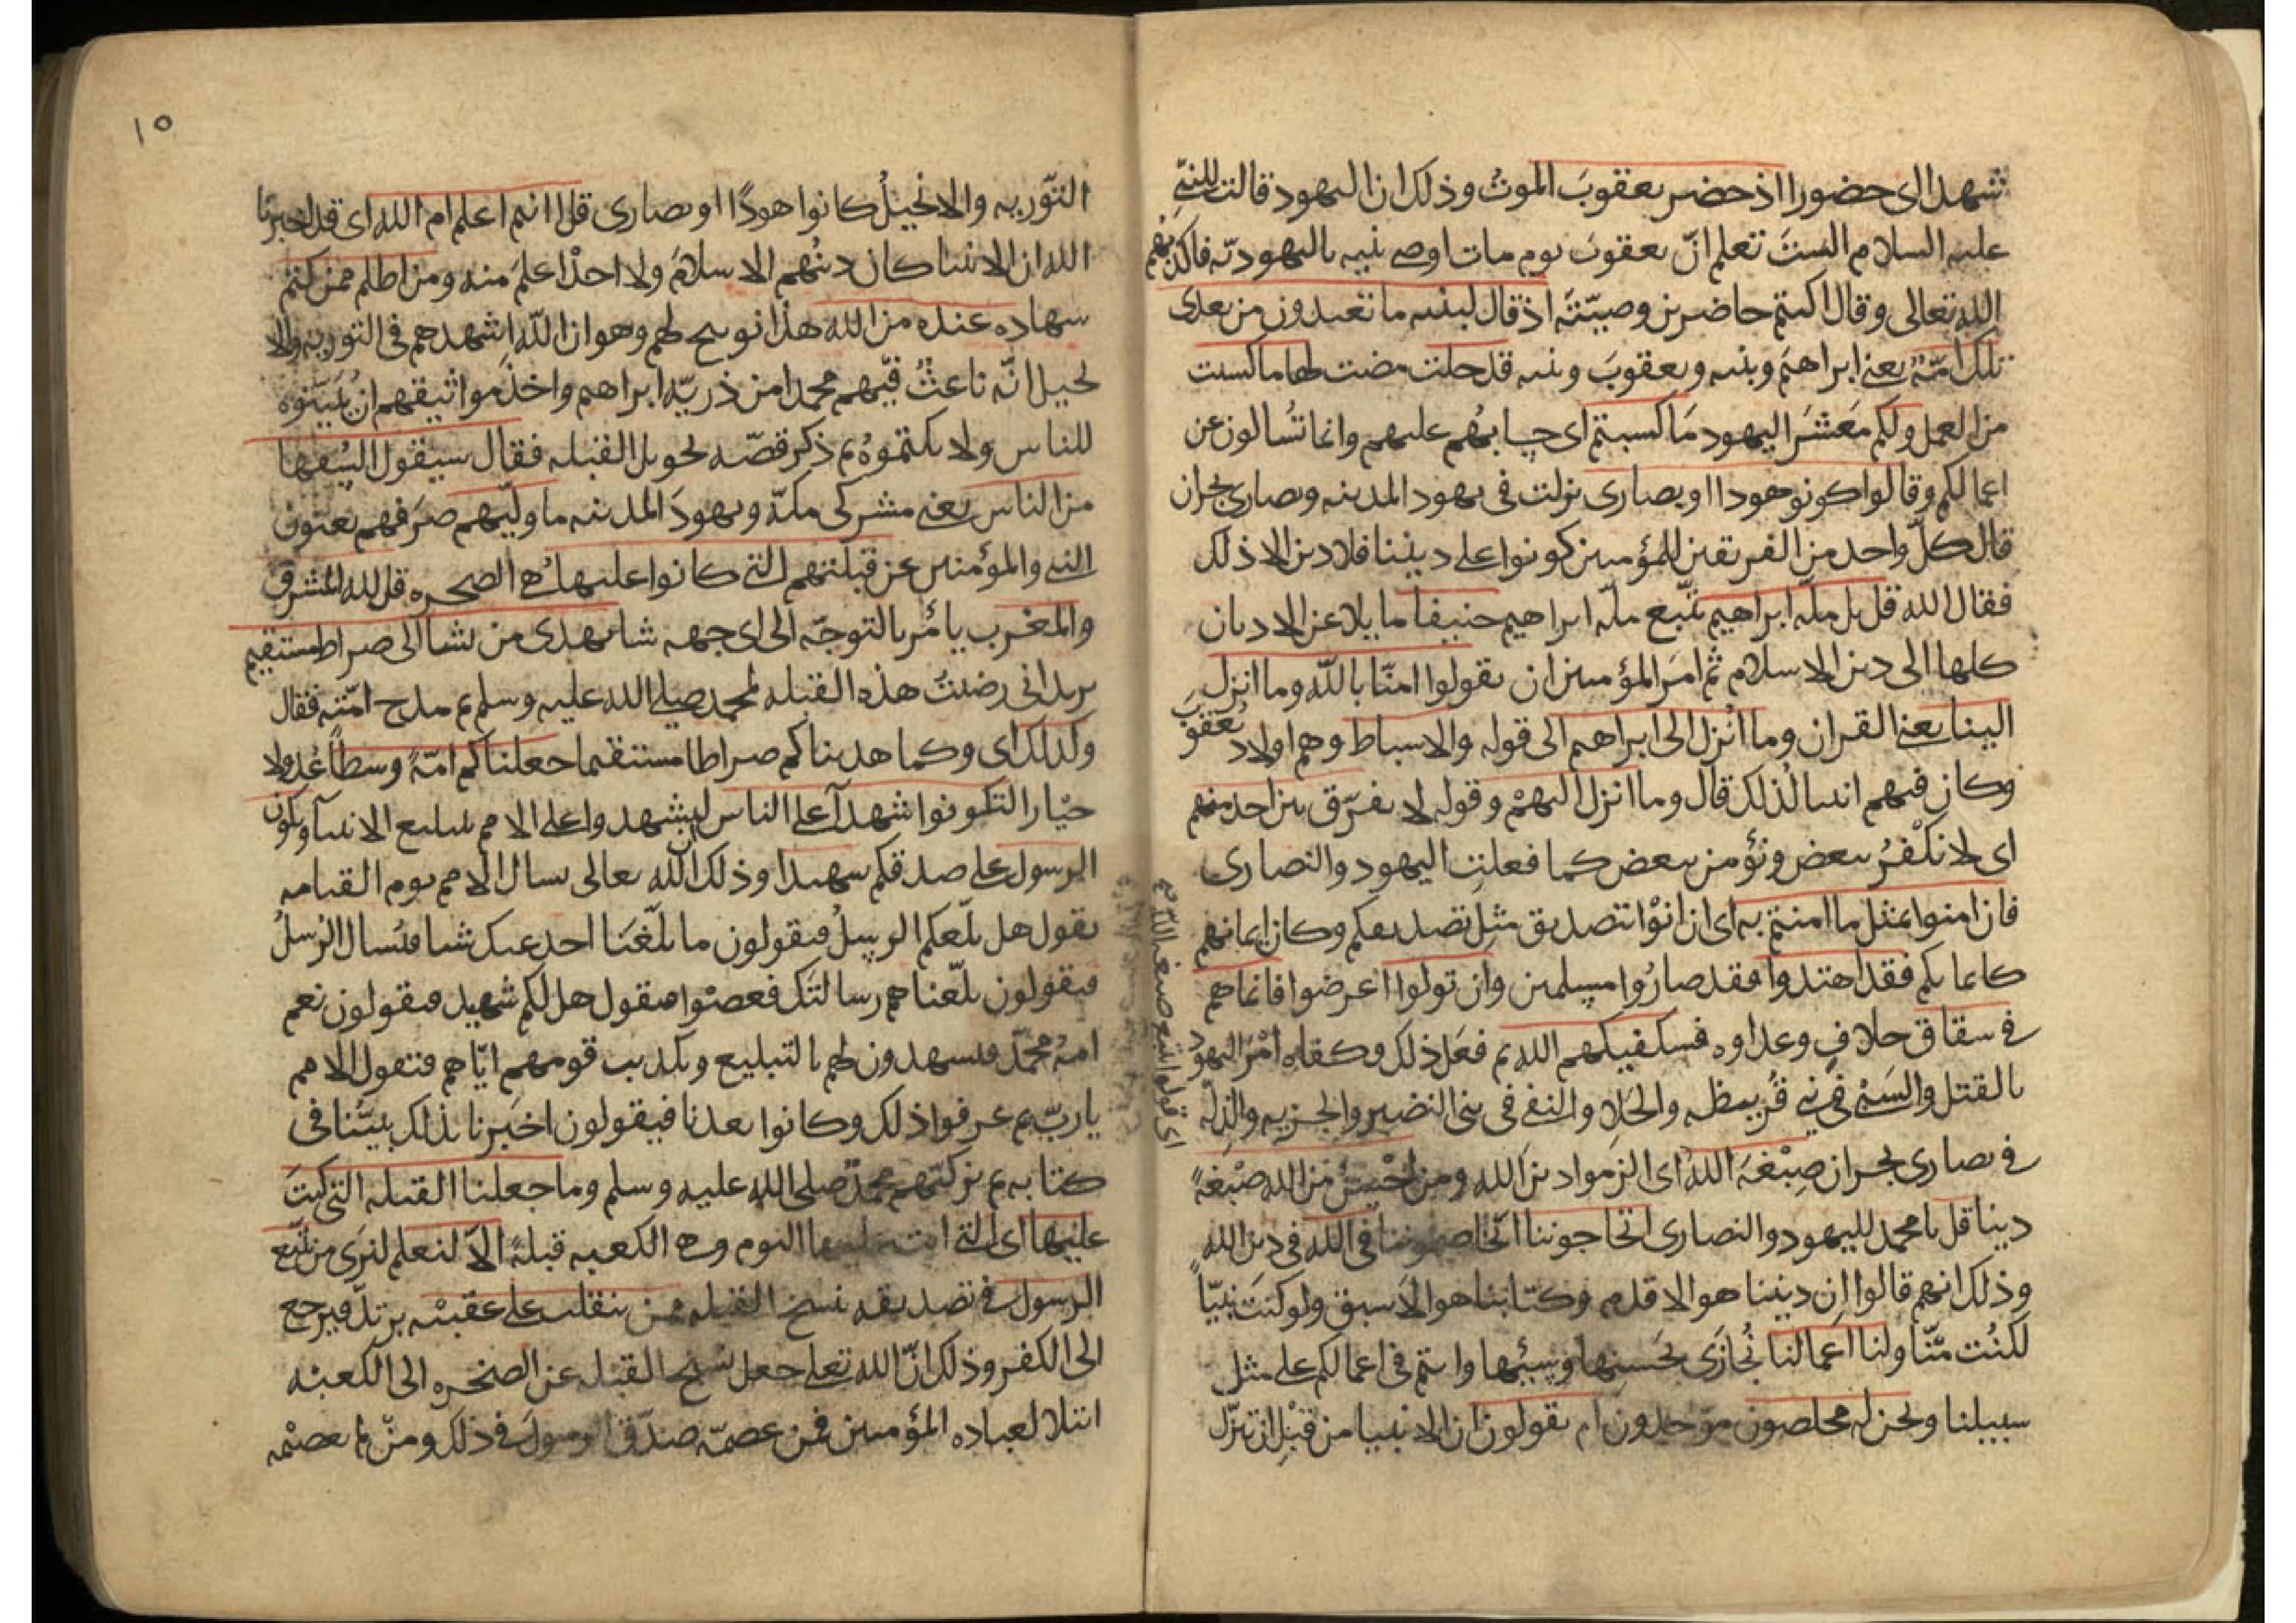 شهدا اى حضورا اذ حضر يعقوبَ الموتُ وذلك ان اليهود قالت للنبىّ
عليه السلام الستَ تعلم انّ يعقوب يوم مات اوصى بنيه باليهوديّه فاكذبهم
الله تعالى وقال اكنتم حاضرين وصيّتَه اذ قال لبنيه ما تعبدون من بعدى
تلك امّةٌ يعنى ابراهيمَ وبنيه ويعقوبَ وبنيه قد خلت مضت لها ما كسبت
من العمل ولكم مَعْشَرَ اليهود مَا كسبتم اى حسابُهم عليهم وانما تُسالون عن
اعمالكم وقالوا كونوا هودا او نصارى نزلت فى يهود المدينه ونصارى نجران
قال كلّ واحد من الفريقين للمؤمنين كونوا على ديننا فلا دين الا ذلك
فقال الله قل بل ملّه ابراهيم نتّبع ملّه ابراهيم حنيفا مايلا عن الاديان
كلها الى دين الاسلام ثم امَر المؤمنين ان يقولوا امنّا بالله وما انزل
الينا يعنى القران وما اُنزل الى ابراهيم الى قوله والاسباط وهم اولاد يعقوبَ
وكان فيهم انبيا لذلك قال وما انزل اليهمْ وقوله لا نفرّق بين احد منهم
اى لا نكْفرُ ببعض ونؤمن ببعض كما فعلت اليهود والنصارى
فان امنوا بمثل ما امنتم به اى ان اتوْا بتصديق مثل تصديقكم وكان ايمانهم
كايمانكم فقد اهتدوا فقد صارُوا مسلمين وان تولوا اعرضوا فانما هم
فى شقاق خلافٍ وعداوه فسيكفيكهم الله ثم فعَل ذلك وكفاه اَمْرَ اليهود
بالقتل والسَبْى فى بنى قُريظه والجَلا والنفى فى بنى النضير والجزيه والذلّه
فى نصارى نجران صِبْغَهَ اللهِ اى الزموا دين الله ومن احْسَنُ من الله صِبْغهً
دينا قل يا محمد لليهود والنصارى اتحاجوننا اتخاصموننا فى الله فى دين الله
وذلك انهم قالوا ان ديننا هو الاقدم وكتابنا هو الاسبق ولو كنتَ نبيّاً
لكنْت منّا ولنا اعمالنا نُجازَى بحَسنها وسيّئها وانتم فى اعمالكم على مثل
سبيلنا ونحن له مخلصون موَحدون ام يقولون ان الانبيا من قبْل ان تنزّل
١٥
التّوريه والانجيلُ كانوا هودًا او نصارى قل اانتم اعلم ام الله اى قد اخبرنا
الله ان الانبيا كان دينُهم الاسلامَ ولا احدٌ اعلمَ منه ومن اظلم ممن كتم
شهاده عنده من الله هذا توبيخ لهم وهو ان اللّه اشهدهم فى التوريه والا
نجيل انّه باعثٌ فيهم محمدا من ذريّه ابراهيم واخذ مواثيقهم ان يُبَيّنوه
للناس ولا يكتموُه ثم ذكر قصّه تحويل القبله فقال سيقول السُفها
من الناس يعنى مشركى مكّة ويهودَ المدينه ما ولّيهم صرَفهم يعنون
النبى والمؤمنين عن قبلتهم التى كانوا عليها وهى الصخره قل لله المشرق
والمغرب يأمُر بالتوجّه الى اى جهه شا يهدى من يشا الى صراط مستقيم
يريد انى رضيتُ هذه القبله لمحمد صلى الله عليه وسلم ثم مدح امّته فقال
وكذلك اى وكما هديناكم صراطا مستقيما جعلناكم امّةً وسطاً عُدولا
خيارا لتكونوا شهدآ على الناس لتشهدوا على الامم بتبليغ الانبيآ ويكون
الرسول على صدقكم شهيدا وذلك ان الله تعالى يسال الامم يوم القيامه
يقول هل بلّغكم الرسلُ فيقولون ما بلّغَنا احد عنك شيا فيُسال الرسلُ
فيقولون بلّغناهم رسالتَك فعصَوْا فيقول هل لكم شهيد فيقولون نعم
امهُ محمّد فيشهدون لهم بالتبليغ وتكذيب قومهم ايّاهم فتقول الامم
يا ربّ بم عرفوا ذلك وكانوا بعدنا فيقولون اخبَرنا بذلك نبيّنا فى
كتابه ثم يزكّيهم محمدٌ صلى الله عليه وسلم وما جعلنا القبله التى كنتَ
عليها اى التى انت عليها اليوم وهى الكعبه قبلةً الّا لنعلم لنرَى من يتّبع
الرسول فى تصديقه بنسخ القبله ممن ينقلب على عقبيْه يرتدّ فيرجع
الى الكفر وذلك انّ الله تعلى جعل نسخ القبله عن الصخره الى الكعبْه
ابتلا لعباده المؤمنين فمن عصمَه صدّق الرسولَ فى ذلك ومنْ لم يعصمْه